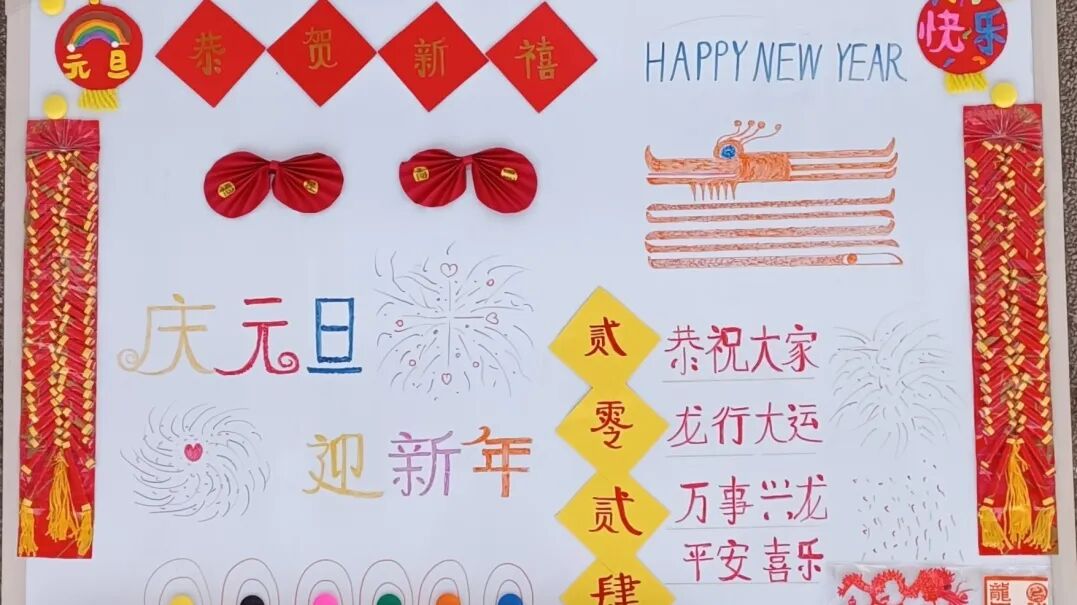 元旦
恭贺新禧
HAPPY NEW YEAR
快乐
庆元旦
迎新年
贰零贰肆
恭祝大家
龙行大运
万事兴龙
平安喜乐
龍